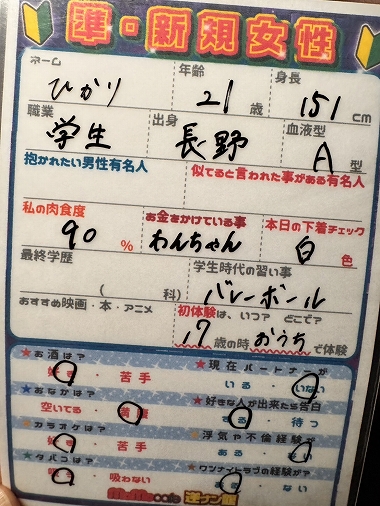 準・新規女性
ネーム ひかり
年齢 21 歳
身長 151 cm
職業 学生
出身 長野
血液型 A 型
抱かれたい男性有名人
似てると言われた事がある有名人
私の肉食度 90 %
お金をかけている事 わんちゃん
本日の下着チェック 白 色
最終学歴
( 科)
学生時代の習い事 バレーボール
おすすめ映画・本・アニメ
初体験は、いつ? どこで?
17 歳の時 おうち で体験
★お酒は?
好き ・ 苦手
★現在パートナーが
いる ・ いない
★おなかは?
空いてる ・ 満腹
★好きな人が出来たら告白
する ・ 待つ
★カラオケは?
好き ・ 苦手
★浮気や不倫経験が
ある ・
★タバコは?
吸わない
★ワンナイトラブの経験が?
ない
MoMocafe 逆ナン館